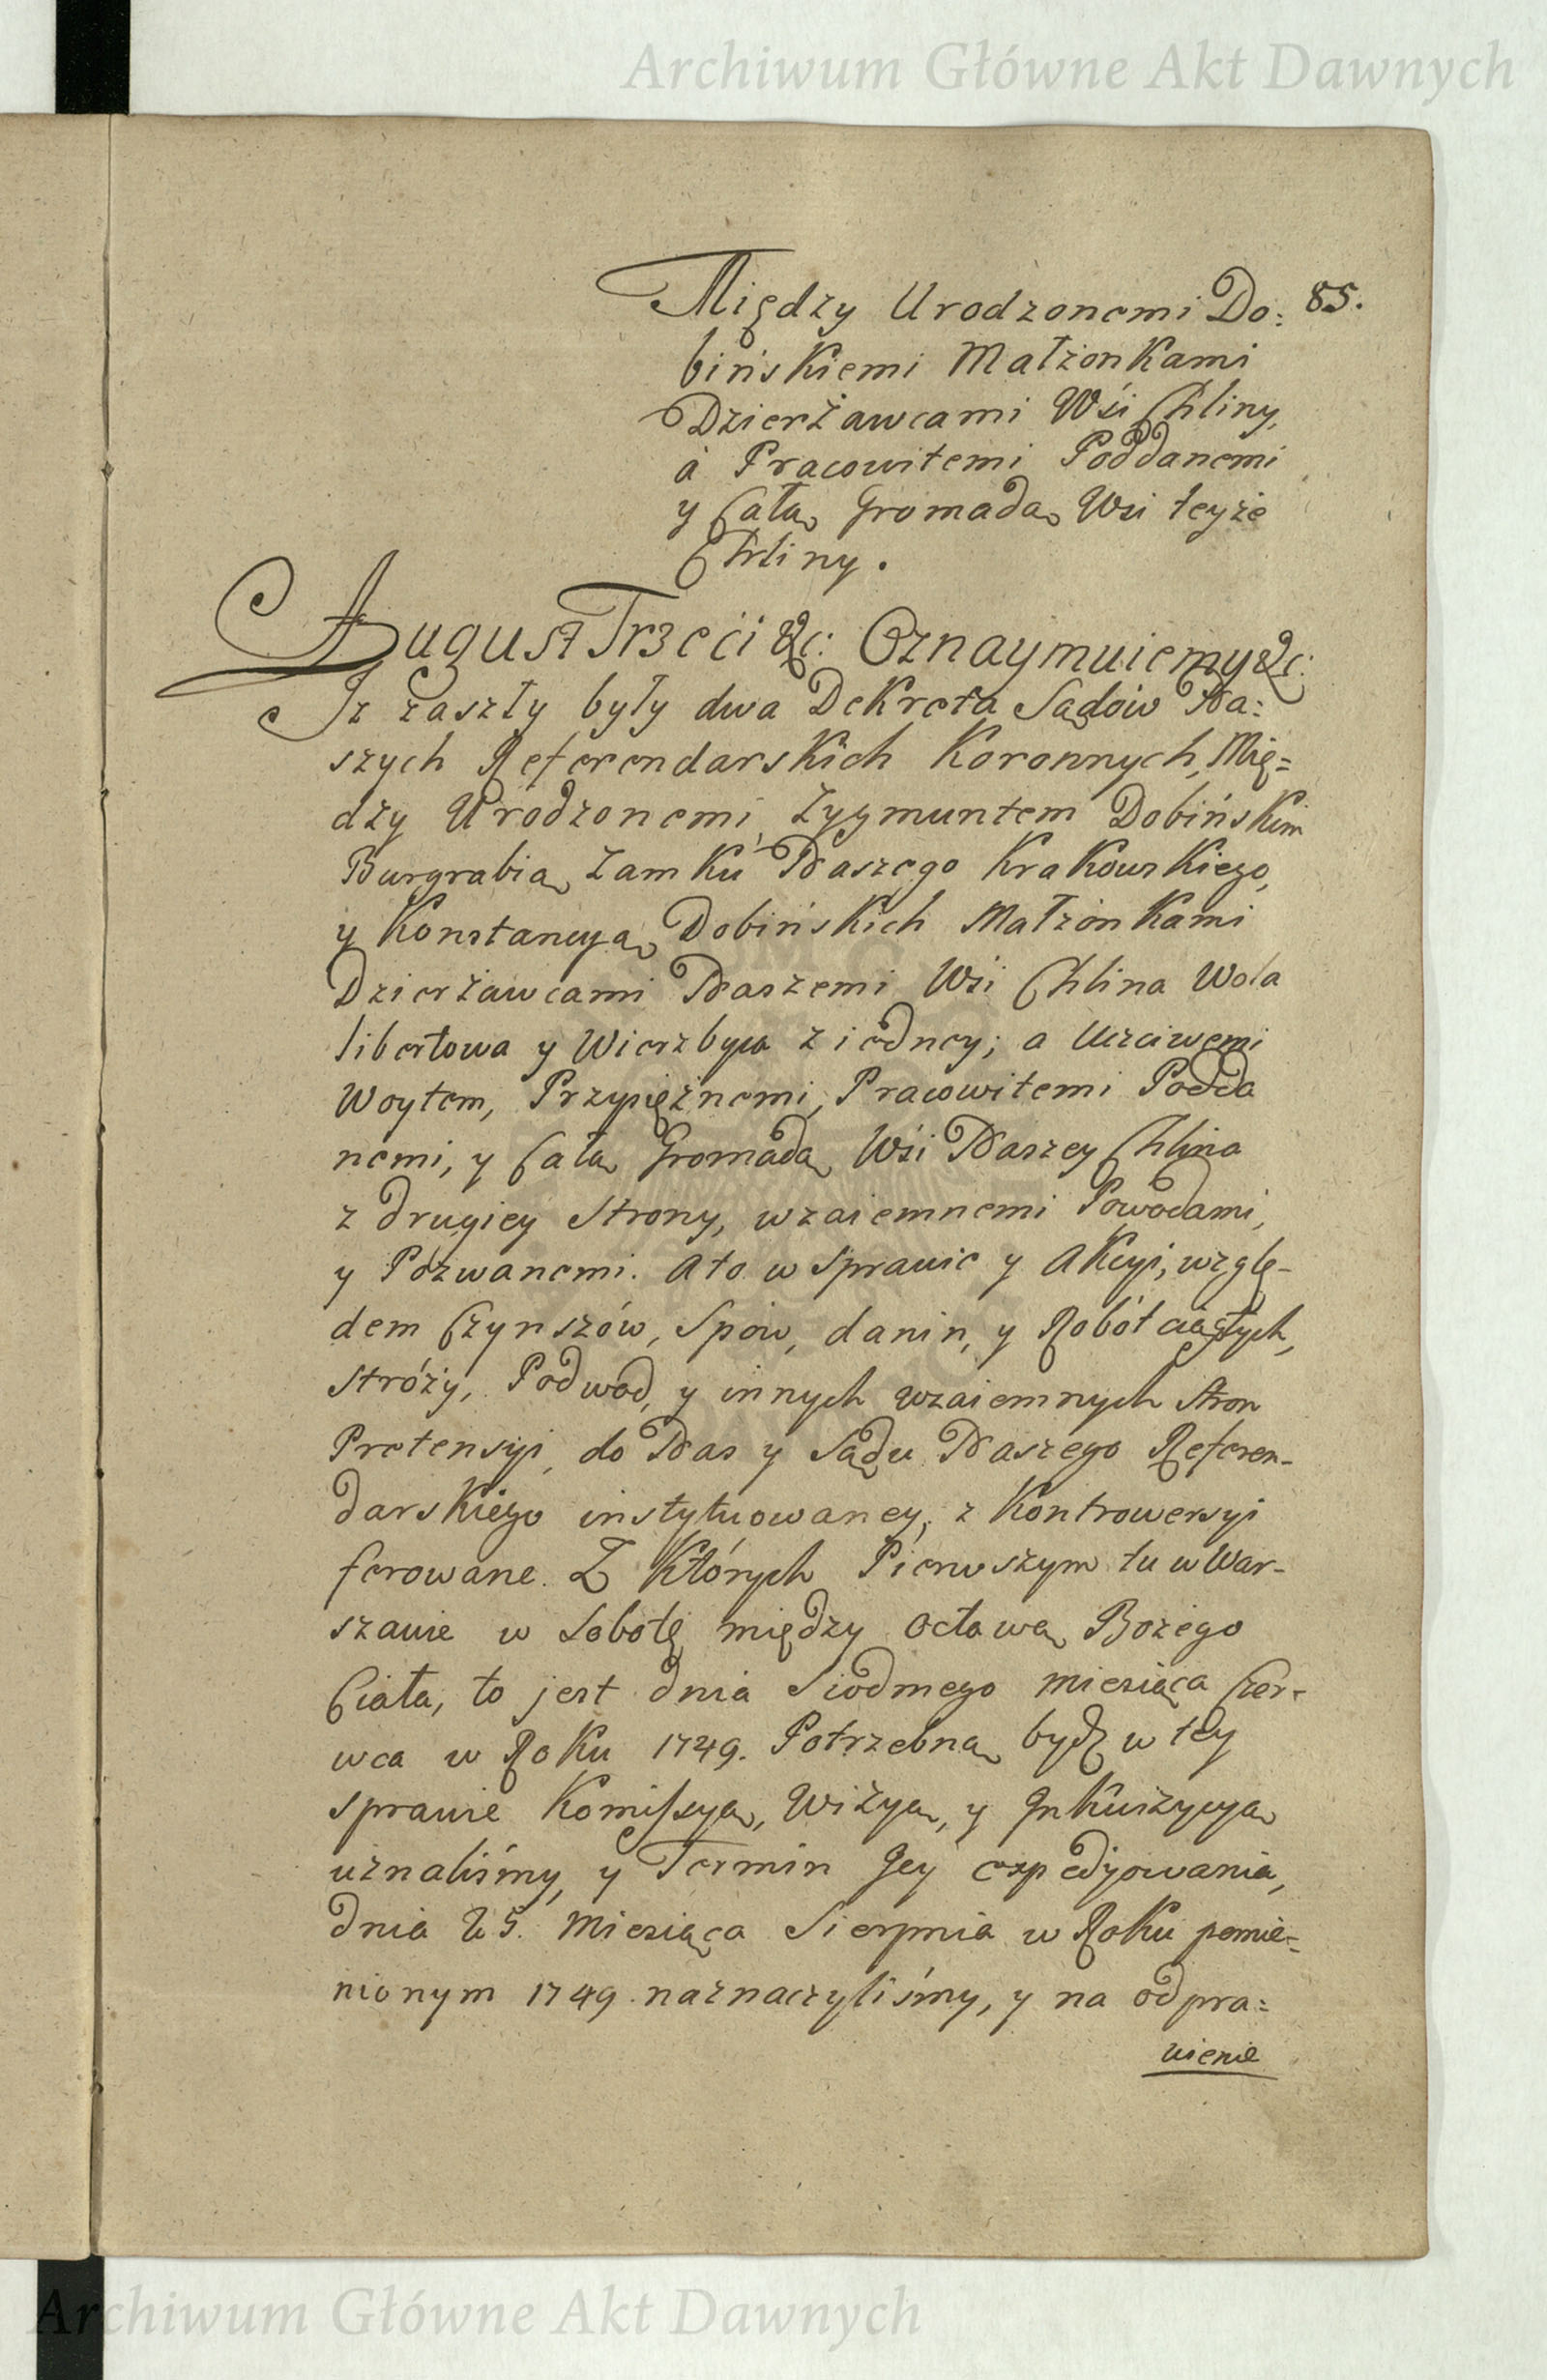 Archiwum Główne Akt Dawnych
85.
Między Urodzonemi Do:
bińskiemi Małżonkami
Dzierżawcami Wśi Chliny,
à Pracowitemi Poddanemi
y Całą Gromadą Wsi teyże
Chliny.
August Trzeci &c: Oznaymuiemy &c:
Iż zaszły były dwa Dekreta Sądów Na:
szych Referendarskich Koronnych, Mię=
dzy Urodzonemi, Zygmuntem Dobińskim
Burgrabią Zamku Naszego Krakowskiego,
y Konstancyą Dobińskich Małżonkami
Dzierżawcami Naszemi Wśi Chlina Wola
libertowa y Wierzbyca z iedney; a Uczciwemi
Woytem, Przysiężnemi, Pracowitemi Podda
nemi, y Całą Gromadą Wśi Naszey Chlina
z drugiey Strony, wzaiemnemi Powodami,
y Pozwanemi. Ato w Sprawie y Akcyi, wzglę-
dem Czynszów, Spów, danin, y Robót ciągłych,
Stróży, Podwod, y innych wzaiemnych Stron
Pretensyi, do Nas y Sądu Naszego Referen-
darskiego instytuowaney, z Kontrowersyi
ferowane. Z Których Pierwszym tu w War-
szawie w Sobotę między Octawą Bożego
Ciała, to jest dnia Siodmego miesiąca Czer-
wca w Roku 1749. Potrzebną bydz w tey
sprawie Komissyą, Wizyą, y Inkwizycyą
uznaliśmy, y Termin Jey expedyowania,
dnia 25. Miesiąca Sierpnia w Roku pomie=
nionym 1749 naznaczyliśmy, y na odpra=
wienie
Archiwum Główne Akt Dawnych